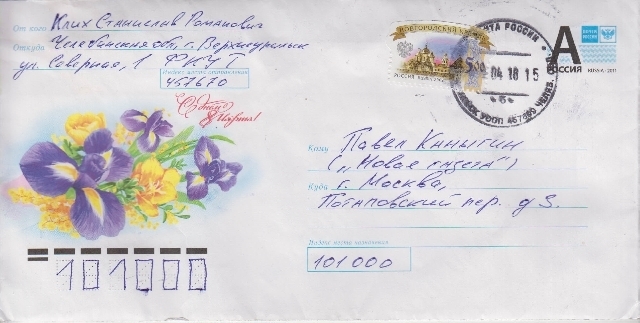 От кого Клих Станислав Романович
Откуда Челябинская обл, г. Верхнеуральск
ул. Северная, 1 ФКУТ
Индекс места отправления
457670
С днём
8 Марта!
НОВГОРОДСКИЙ КРЕМЛЬ
РОССИЯ
ПОЧТА РОССИИ
04 18 15
А
РОССИЯ
RUSSIA · 2011
Кому Павел Каныгин
(„Новая газета")
Куда г. Москва,
Потаповский пер. д 3.
Индекс места назначения
101000
101000